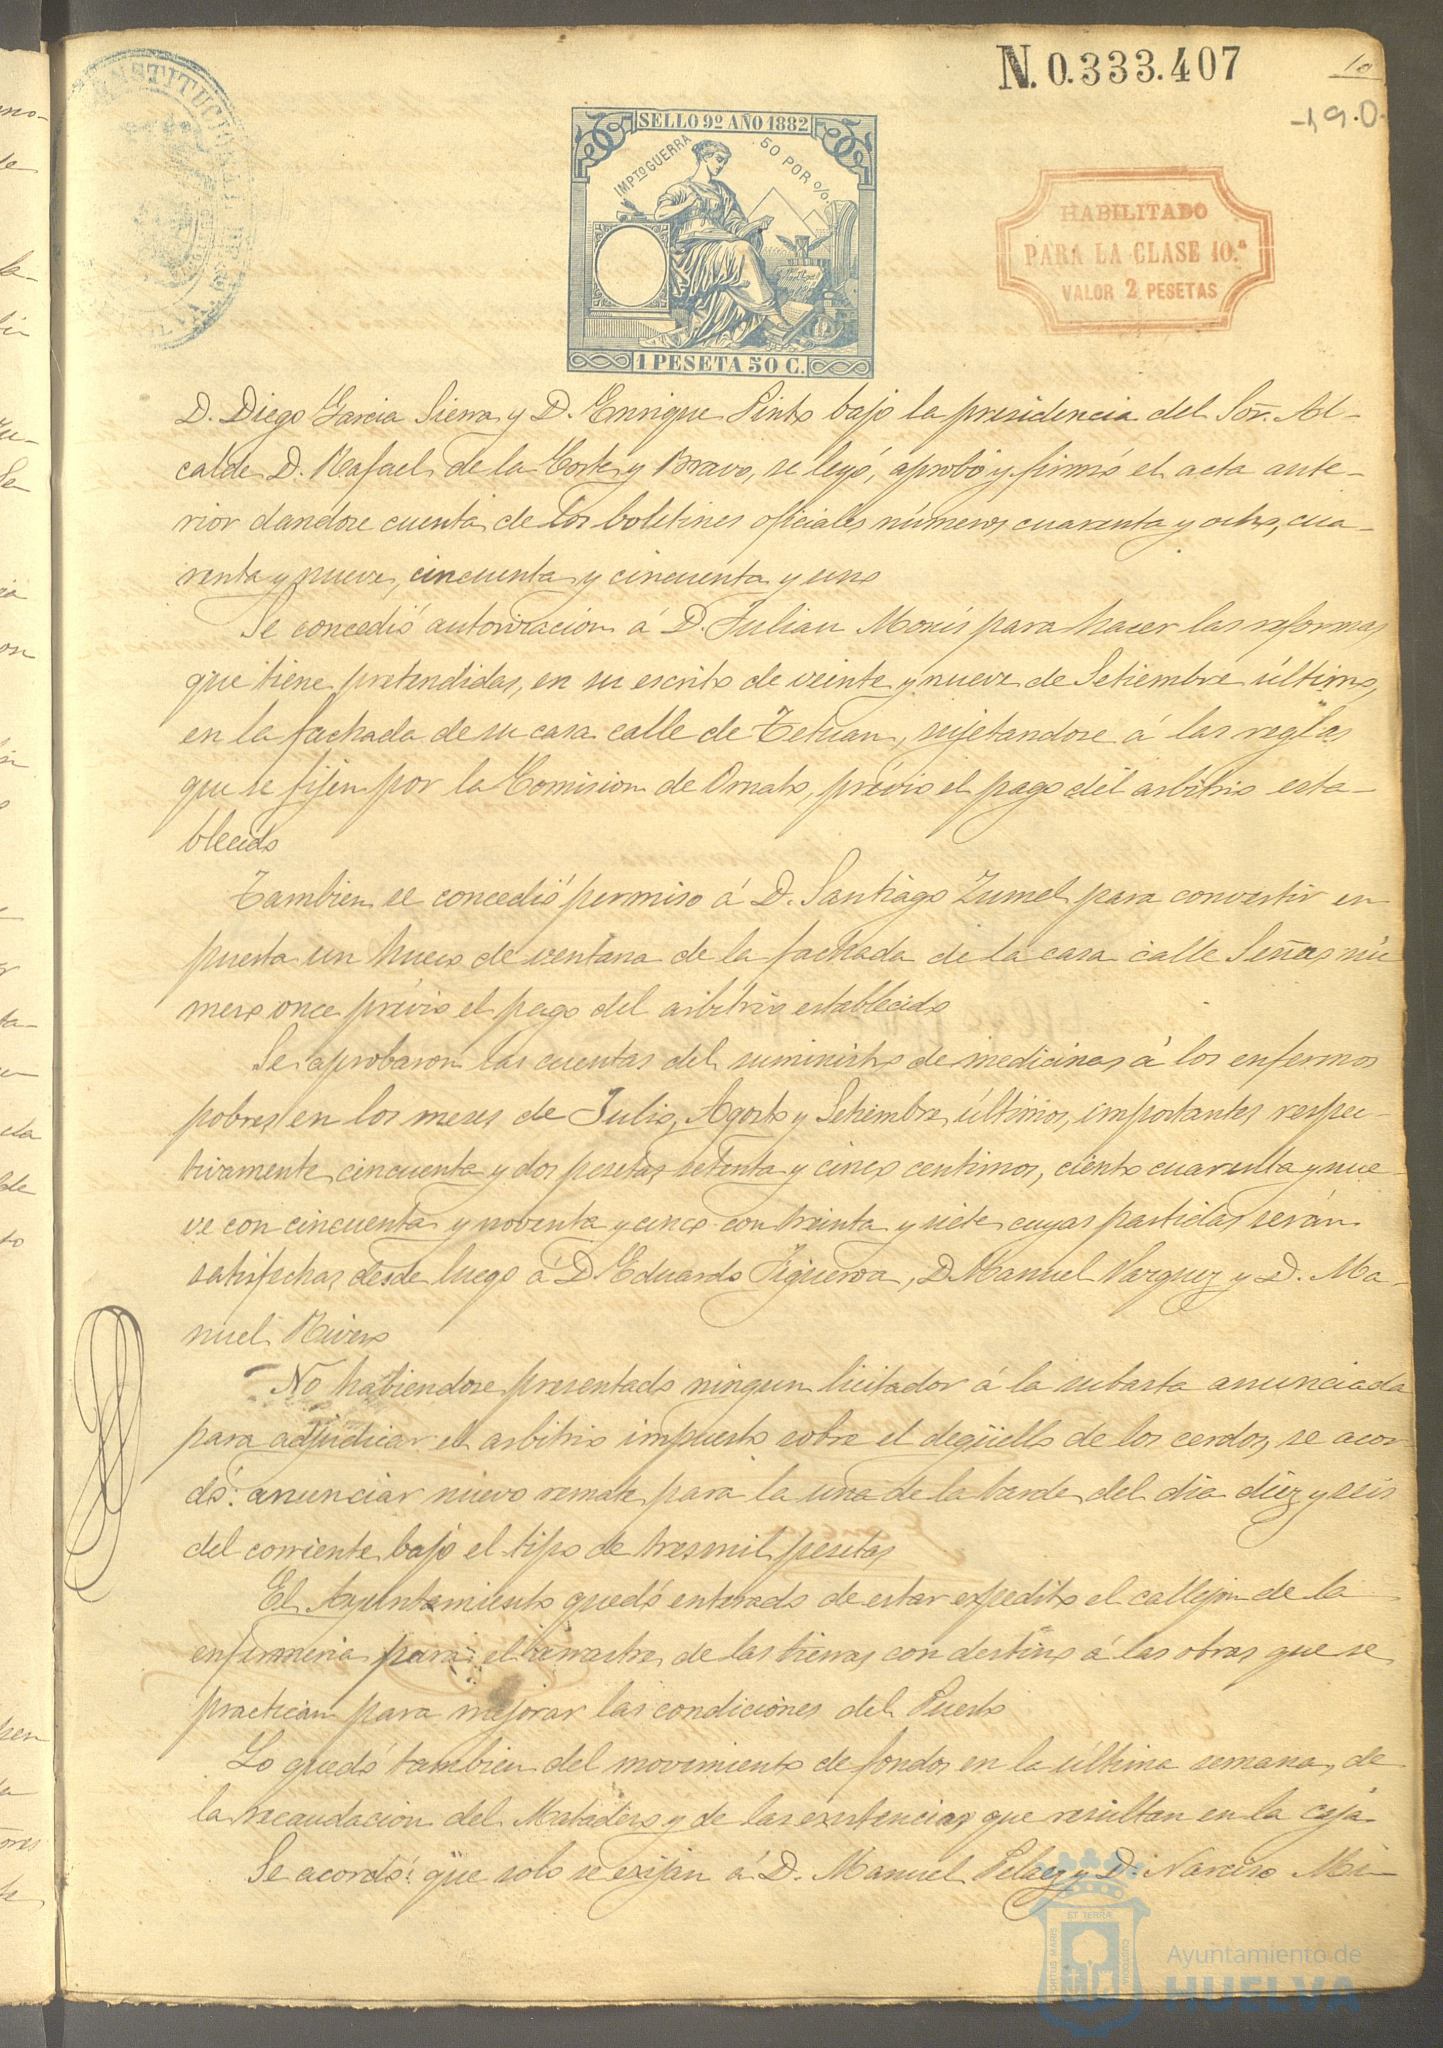 N. 0.333.407
10
SELLO 9º AÑO 1882
IMPTO GUERRA 50 POR %
1 PESETA 50 C.
HABILITADO
PARA LA CLASE 10.ª
VALOR 2 PESETAS
D. Diego Garcia Sierra y D. Enrique Pinto bajo la presidencia del Sor. Al-
calde D. Rafael de la Corte y Bravo, se leyó, aprobó y firmó el acta ante-
rior dandose cuenta de los boletines oficiales números cuarenta y ocho, cua-
renta y nueve, cincuenta y cincuenta y uno
Se concedió autorizacion á D. Julian Monis para hacer las reformas
que tiene pretendidas, en su escrito de veinte y nueve de Setiembre último,
en la fachada de su casa calle de Tetuan, sujetandose á las reglas
que se fijen por la Comision de Ornato, prévio el pago del arbitrio esta-
blecido
Tambien se concedió permiso á D. Santiago Zumel para convertir en
puerta un hueco de ventana de la fachada de la casa calle Señas nú
mero once prévio el pago del arbitrio establecido
Se aprobaron las cuentas del suministro de medicinas á los enfermos
pobres en los meses de Julio, Agosto y Setiembre últimos, importantes respec-
tivamente cincuenta y dos pesetas setenta y cinco centimos, ciento cuarenta y nue
ve con cincuenta y noventa y cinco con treinta y siete cuyas partidas serán
satisfechas desde luego á D. Eduardo Figueroa, D. Manuel Vazquez y D. Ma-
nuel Rivero
No habiendose presentado ningun licitador á la subasta anunciada
para adjudicar el arbitrio impuesto sobre el degüello de los cerdos, se acor
dó: anunciar nuevo remate para la una de la tarde del dia diez y seis
del corriente bajo el tipo de tres mil pesetas
El Ayuntamiento quedó enterado de estar expedito el callejon de la
enfermeria para el arrastre de las tierras con destino á las obras que se
practican para mejorar las condiciones del Puerto
Lo quedó tambien del movimiento de fondos en la última semana, de
la recaudacion del Matadero y de las existencias que resultan en la caja
Se acordó: que solo se exijan á D. Manuel Pelaez y D. Narciso Mi-
Ayuntamiento de
HUELVA